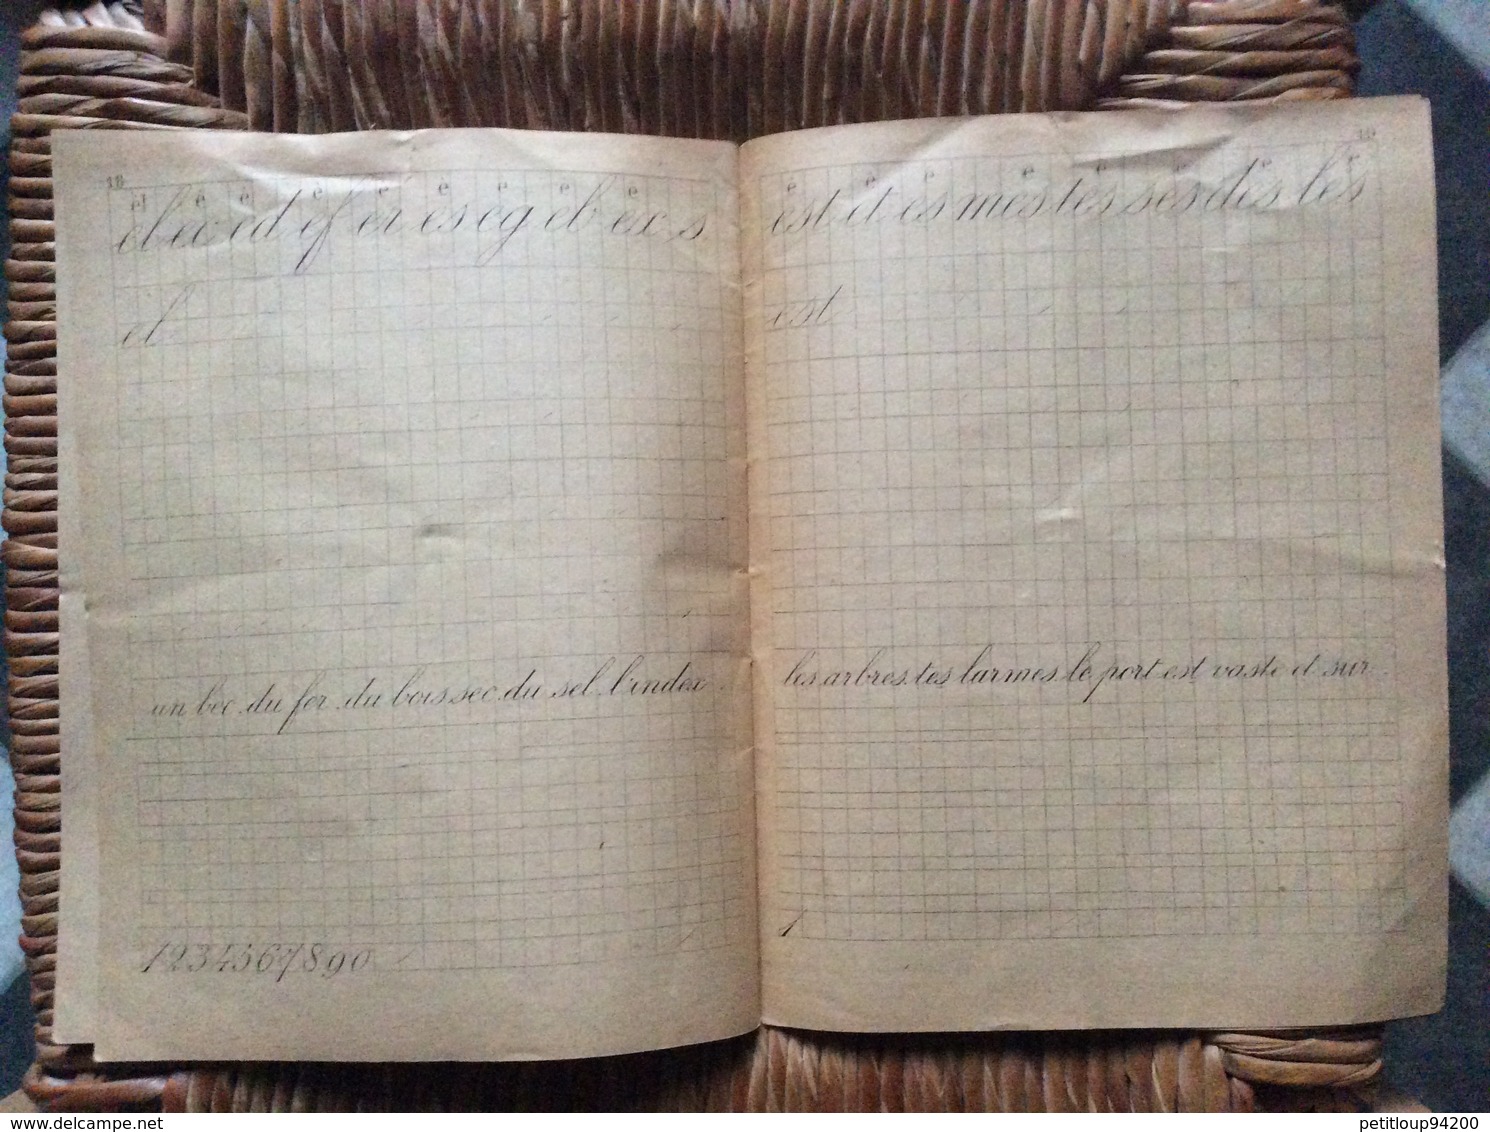 18
el è è è é è e è e
el ec ed ef er es eg eb ex s
el
un bec. du fer. du bois sec. du sel. l'index.
1 2 3 4 5 6 7 8 9 0
19
è è e e e e e
est et es mes tes ses des les
est
les arbres. tes larmes. le port est vaste et sur.
1
www.delcampe.net
petitloup94200